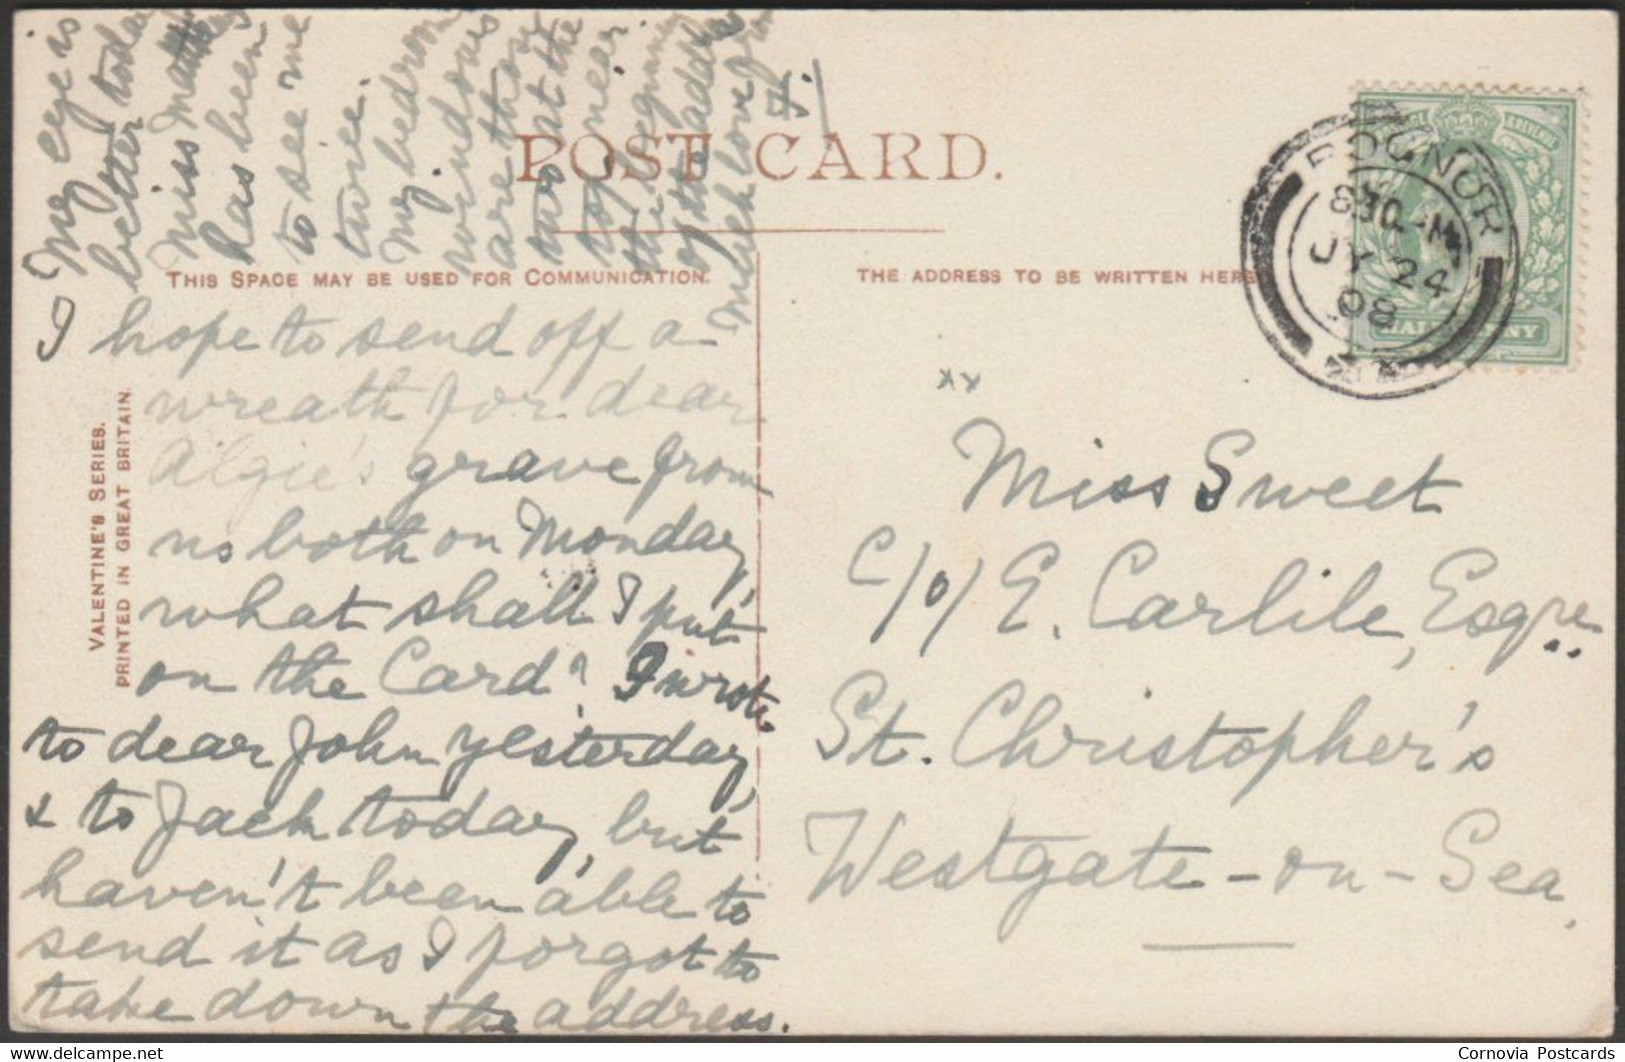 My eye is
better today
Miss
has been
to see me
twice.
My bedroom
windows
are those
two at the
top near
the beginning
of the address
Much love from
POST CARD.
THIS SPACE MAY BE USED FOR COMMUNICATION.
THE ADDRESS TO BE WRITTEN HERE
BOGNOR
JY 24
08
HALFPENNY
VALENTINE'S SERIES.
PRINTED IN GREAT BRITAIN.
I hope to send off a
wreath for dear
Algie's grave from
us both on Monday,
what shall I put
on the Card? I wrote
to dear John yesterday,
& to Jack today, but
haven't been able to
send it as I forgot to
take down the address.
xx
Miss Sweet
C/o/ E. Carlile, Esqre
St. Christopher's
Westgate-on-Sea.
delcampe.net
Cornovia Postcards